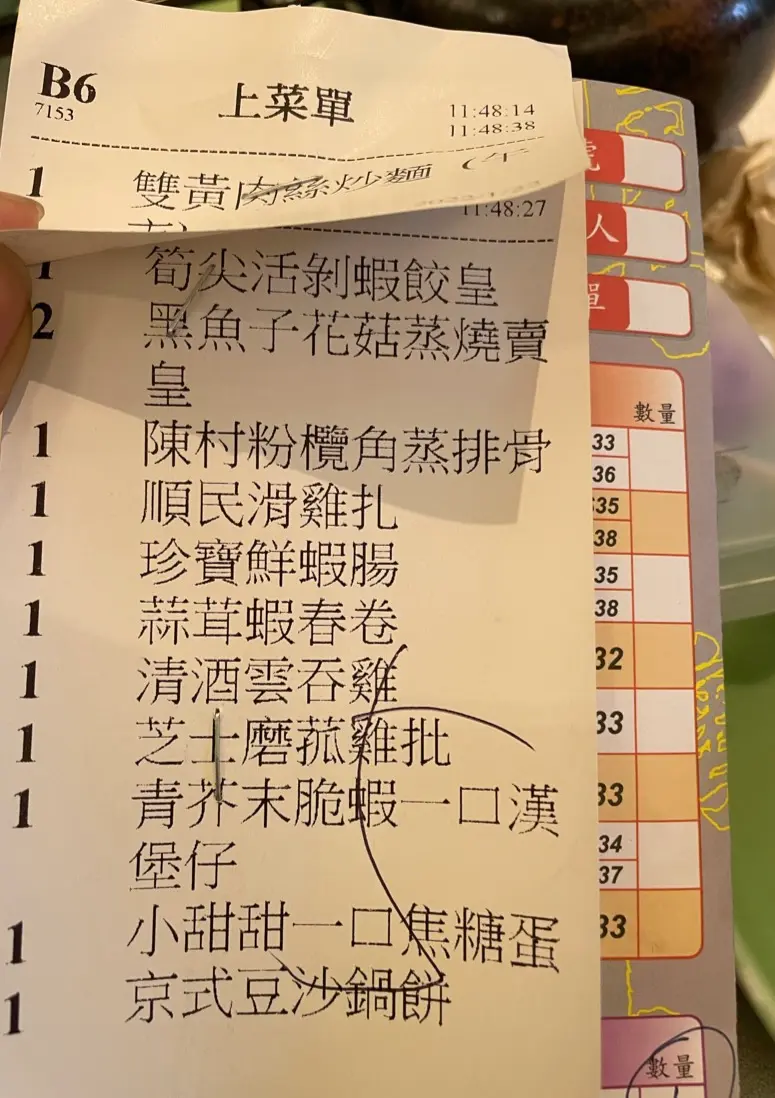 B6
7153
上菜單
11:48:14
11:48:38
1 雙黃肉絲炒麵
11:48:27
1 筍尖活剝蝦餃皇
2 黑魚子花菇蒸燒賣
皇
1 陳村粉欖角蒸排骨
1 順民滑雞扎
1 珍寶鮮蝦腸
1 蒜茸蝦春卷
1 清酒雲吞雞
1 芝士磨菰雞批
1 青芥末脆蝦一口漢
堡仔
1 小甜甜一口焦糖蛋
1 京式豆沙鍋餅
號
人
單
數量
33
36
35
38
35
38
32
33
33
34
37
33
數量